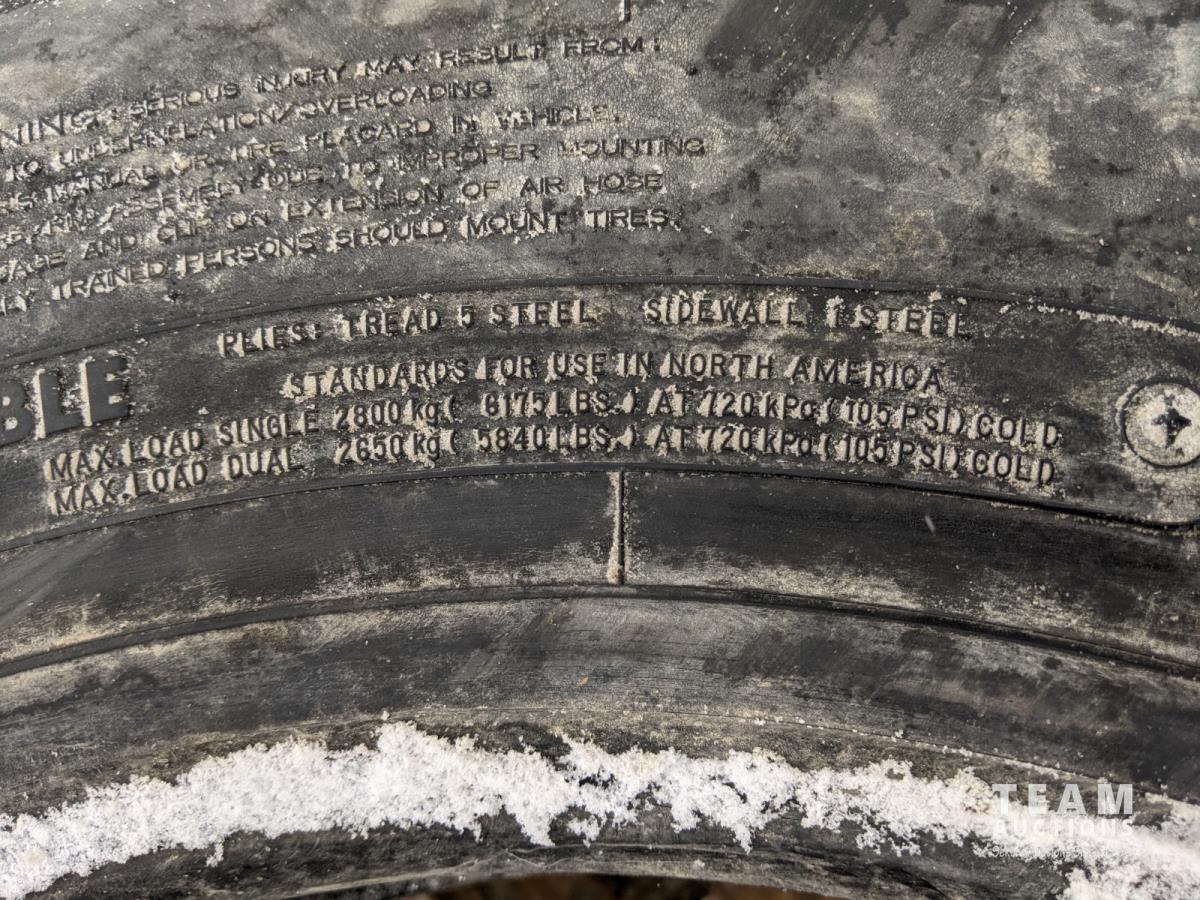 NING: SERIOUS INJURY MAY RESULT FROM:
TO UNDERINFLATION/OVERLOADING
MANUAL OR TIRE PLACARD IN VEHICLE.
ASSEMBLY DUE TO IMPROPER MOUNTING
AND CLIP-ON EXTENSION OF AIR HOSE
TRAINED PERSONS SHOULD MOUNT TIRES.
PLIES: TREAD 5 STEEL SIDEWALL 1 STEEL
BLE
STANDARDS FOR USE IN NORTH AMERICA
MAX.LOAD SINGLE 2800 kg ( 6175 LBS.) AT 720 kPa (105 PSI) COLD
MAX.LOAD DUAL 2650 kg ( 5840 LBS.) AT 720 kPa (105 PSI) COLD
TEAM
AUCTIONS